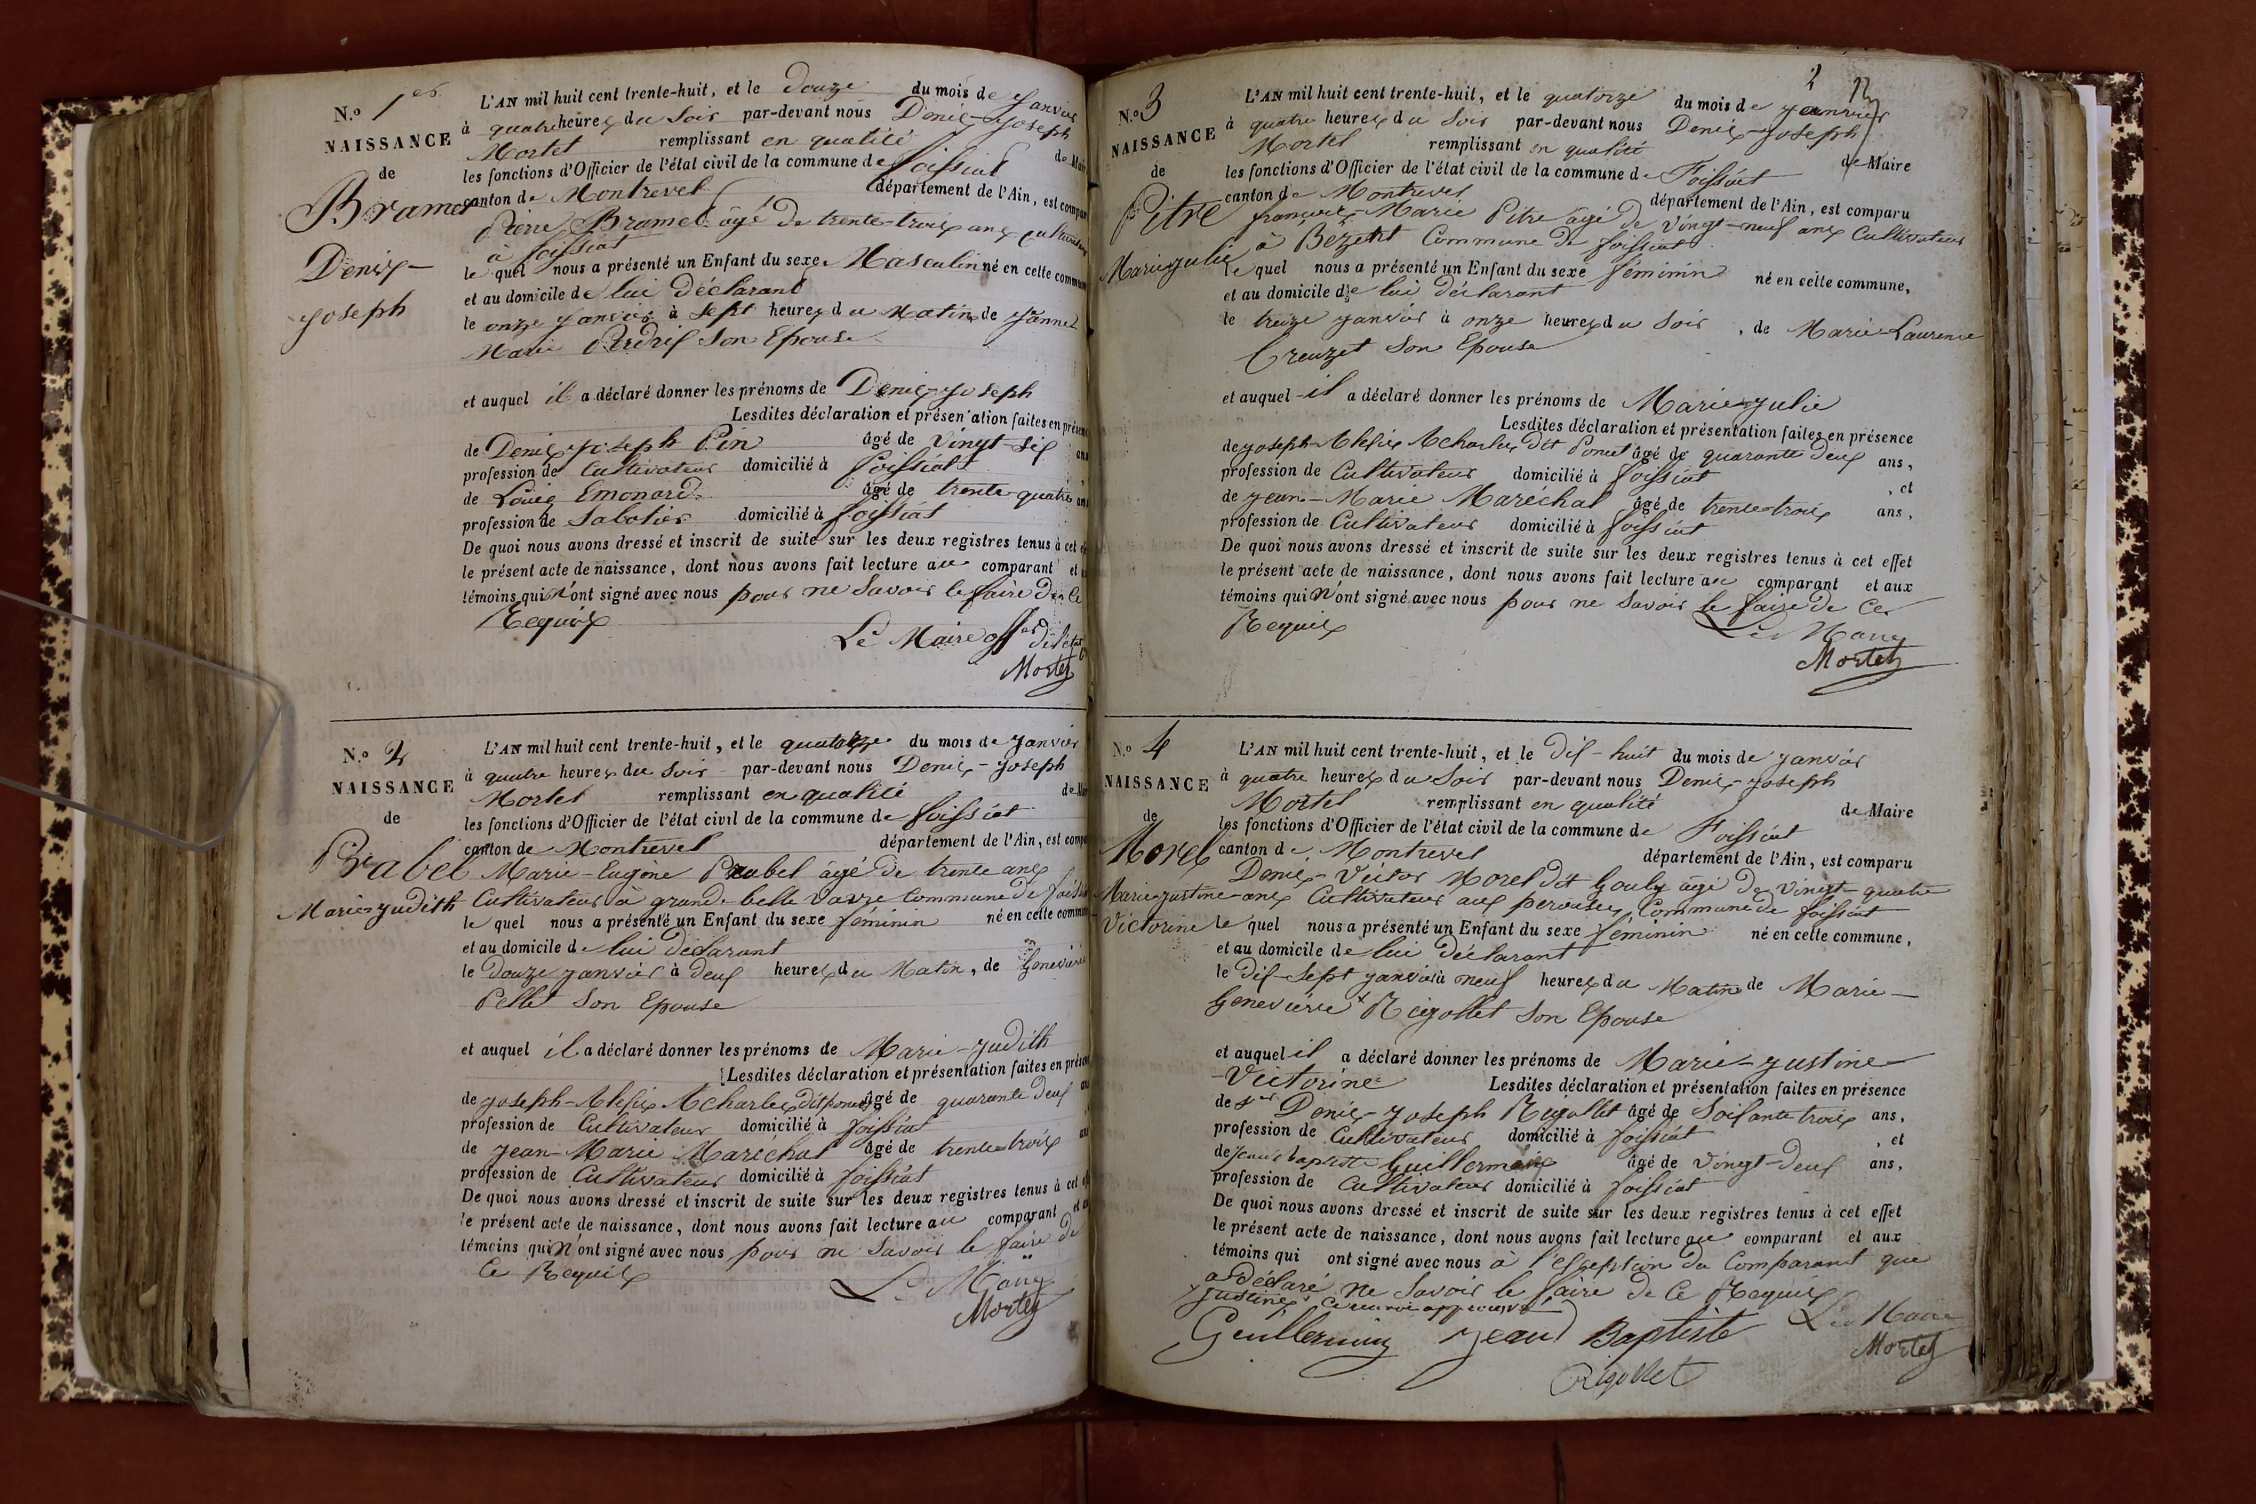 N.o 1er
NAISSANCE
de
Bramet
Denis-
Joseph
L'AN mil huit cent trente-huit, et le douze du mois de Janvier
à quatre heures du Soir par-devant nous Denis-Joseph
Mortel remplissant en qualité de Mai
les fonctions d'Officier de l'état civil de la commune de foissiat
canton de Montrevel département de l'Ain, est compar
Pierre Bramet âgé de trente-trois ans Cultivateur
à foissiat
le quel nous a présenté un Enfant du sexe Masculin né en cette commun
et au domicile de lui déclarant
le onze Janvier à Sept heures du Matin de Jeanne
Marie Perdrix Son Epouse
et auquel il a déclaré donner les prénoms de Denis-Joseph
Lesdites déclaration et présentation faites en présen
de Denis-Joseph Pin âgé de vingt-six ans
profession de Cultivateur domicilié à foissiat
de Louis Emonard âgé de trente-quatre ans
profession de Sabotier domicilié à foissiat
De quoi nous avons dressé et inscrit de suite sur les deux registres tenus à cet
le présent acte de naissance, dont nous avons fait lecture au comparant et
témoins qui n'ont signé avec nous pour ne Savoir le faire De Ce
Requis
Le Maire offer de l'état
Mortel
N.o 2
NAISSANCE
de
Prabel
Marie-Judith
L'AN mil huit cent trente-huit, et le quatorze du mois de Janvier
à quatre heures du Soir par-devant nous Denis-Joseph
Mortel remplissant en qualité de Mai
les fonctions d'Officier de l'état civil de la commune de foissiat
canton de Montrevel département de l'Ain, est compa
Marie-Eugène Prabel âgé de trente ans
Cultivateur à grande belle vavre Commune de foissiat
le quel nous a présenté un Enfant du sexe féminin né en cette commun
et au domicile de lui déclarant
le Douze Janvier à deux heures du Matin, de Geneviève
Pellet Son Epouse
et auquel il a déclaré donner les prénoms de Marie-Judith
Lesdites déclaration et présentation faites en présen
de Joseph-Alexis Acharles dit ponet âgé de quarante deux
profession de Cultivateur domicilié à foissiat
de Jean-Marie Maréchal âgé de trente trois
profession de Cultivateur domicilié à foissiat
De quoi nous avons dressé et inscrit de suite sur les deux registres tenus à cet
le présent acte de naissance, dont nous avons fait lecture au comparant et
témoins qui n'ont signé avec nous pour ne Savoir le faire de
Ce Requis
Le Maire
Mortel
2
N.o 3
NAISSANCE
de
Pitre
Marie Julie
L'AN mil huit cent trente-huit, et le quatorze du mois de Janvier
à quatre heures du Soir par-devant nous Denis-Joseph
Mortel remplissant en qualité de Maire
les fonctions d'Officier de l'état civil de la commune de Foissiat
canton de Montrevel département de l'Ain, est comparu
françois-Marie Pitre âgé de vingt-neuf ans Cultivateur
à Bézentet Commune de foissiat
le quel nous a présenté un Enfant du sexe féminin né en cette commune,
et au domicile de lui déclarant
le treize Janvier à onze heures du Soir, de Marie-Laurence
Creuzet Son Epouse
et auquel il a déclaré donner les prénoms de Marie-Julie
Lesdites déclaration et présentation faites en présence
de Joseph-Alexis Acharles dit Ponet âgé de quarante deux ans,
profession de Cultivateur domicilié à foissiat, et
de Jean-Marie Maréchal âgé de trente-trois ans,
profession de Cultivateur domicilié à foissiat
De quoi nous avons dressé et inscrit de suite sur les deux registres tenus à cet effet
le présent acte de naissance, dont nous avons fait lecture au comparant et aux
témoins qui n'ont signé avec nous pour ne Savoir le faire De Ce
Requis
Le Maire
Mortel
N.o 4
NAISSANCE
de
Morel
Marie-Justine-
Victorine
L'AN mil huit cent trente-huit, et le dix-huit du mois de Janvier
à quatre heures du Soir par-devant nous Denis-Joseph
Mortel remplissant en qualité de Maire
les fonctions d'Officier de l'état civil de la commune de Foissiat
canton de Montrevel département de l'Ain, est comparu
Denis-Victor Morel dit Gouly âgé de vingt-quatre
ans Cultivateur aux perouses, Commune de foissiat
le quel nous a présenté un Enfant du sexe féminin né en cette commune,
et au domicile de lui déclarant
le dix-Sept Janvier à neuf heures du Matin de Marie-
Geneviève Rigollet Son Epouse
et auquel il a déclaré donner les prénoms de Marie-Justine-
-Victorine Lesdites déclaration et présentation faites en présence
de Sr Denis-Joseph Rigollet âgé de Soixante trois ans,
profession de Cultivateur domicilié à foissiat, et
de Jean baptiste Guillermin âgé de vingt-deux ans,
profession de Cultivateur domicilié à foissiat
De quoi nous avons dressé et inscrit de suite sur les deux registres tenus à cet effet
le présent acte de naissance, dont nous avons fait lecture au comparant et aux
témoins qui ont signé avec nous à l'exception du Comparant qui
a déclaré ne Savoir le faire de Ce Requis
Justine, Ce renvoi approuvé
Guillermin Jean Baptiste Le Maire
Rigollet Mortel